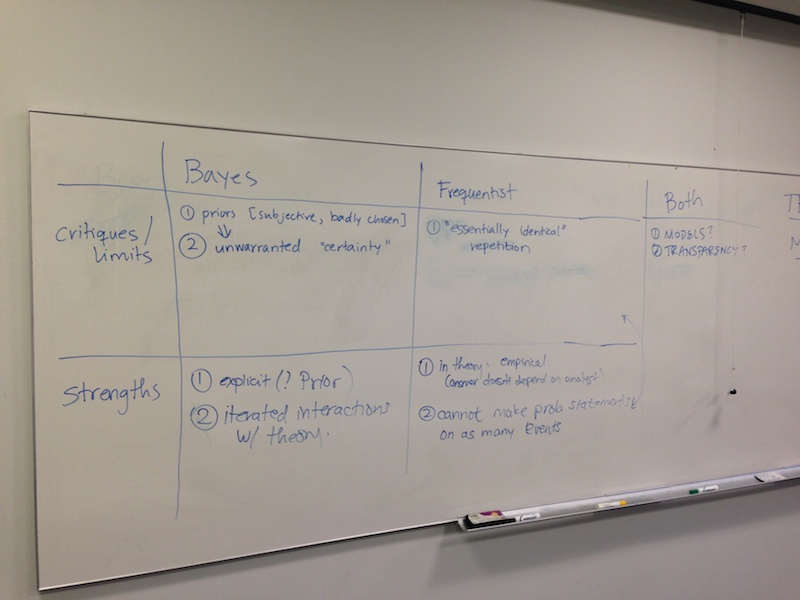 Bayes
Frequentist
Both
Critiques/
Limits
① priors [subjective, badly chosen]
② unwarranted "certainty"
① "essentially identical"
repetition
① MODELS?
② TRANSPARENCY?
Strengths
① explicit (? Prior)
② iterated interactions
w/ theory.
① in theory: empirical
(answer doesn't depend on analyst)
② cannot make prob statements
on as many Events